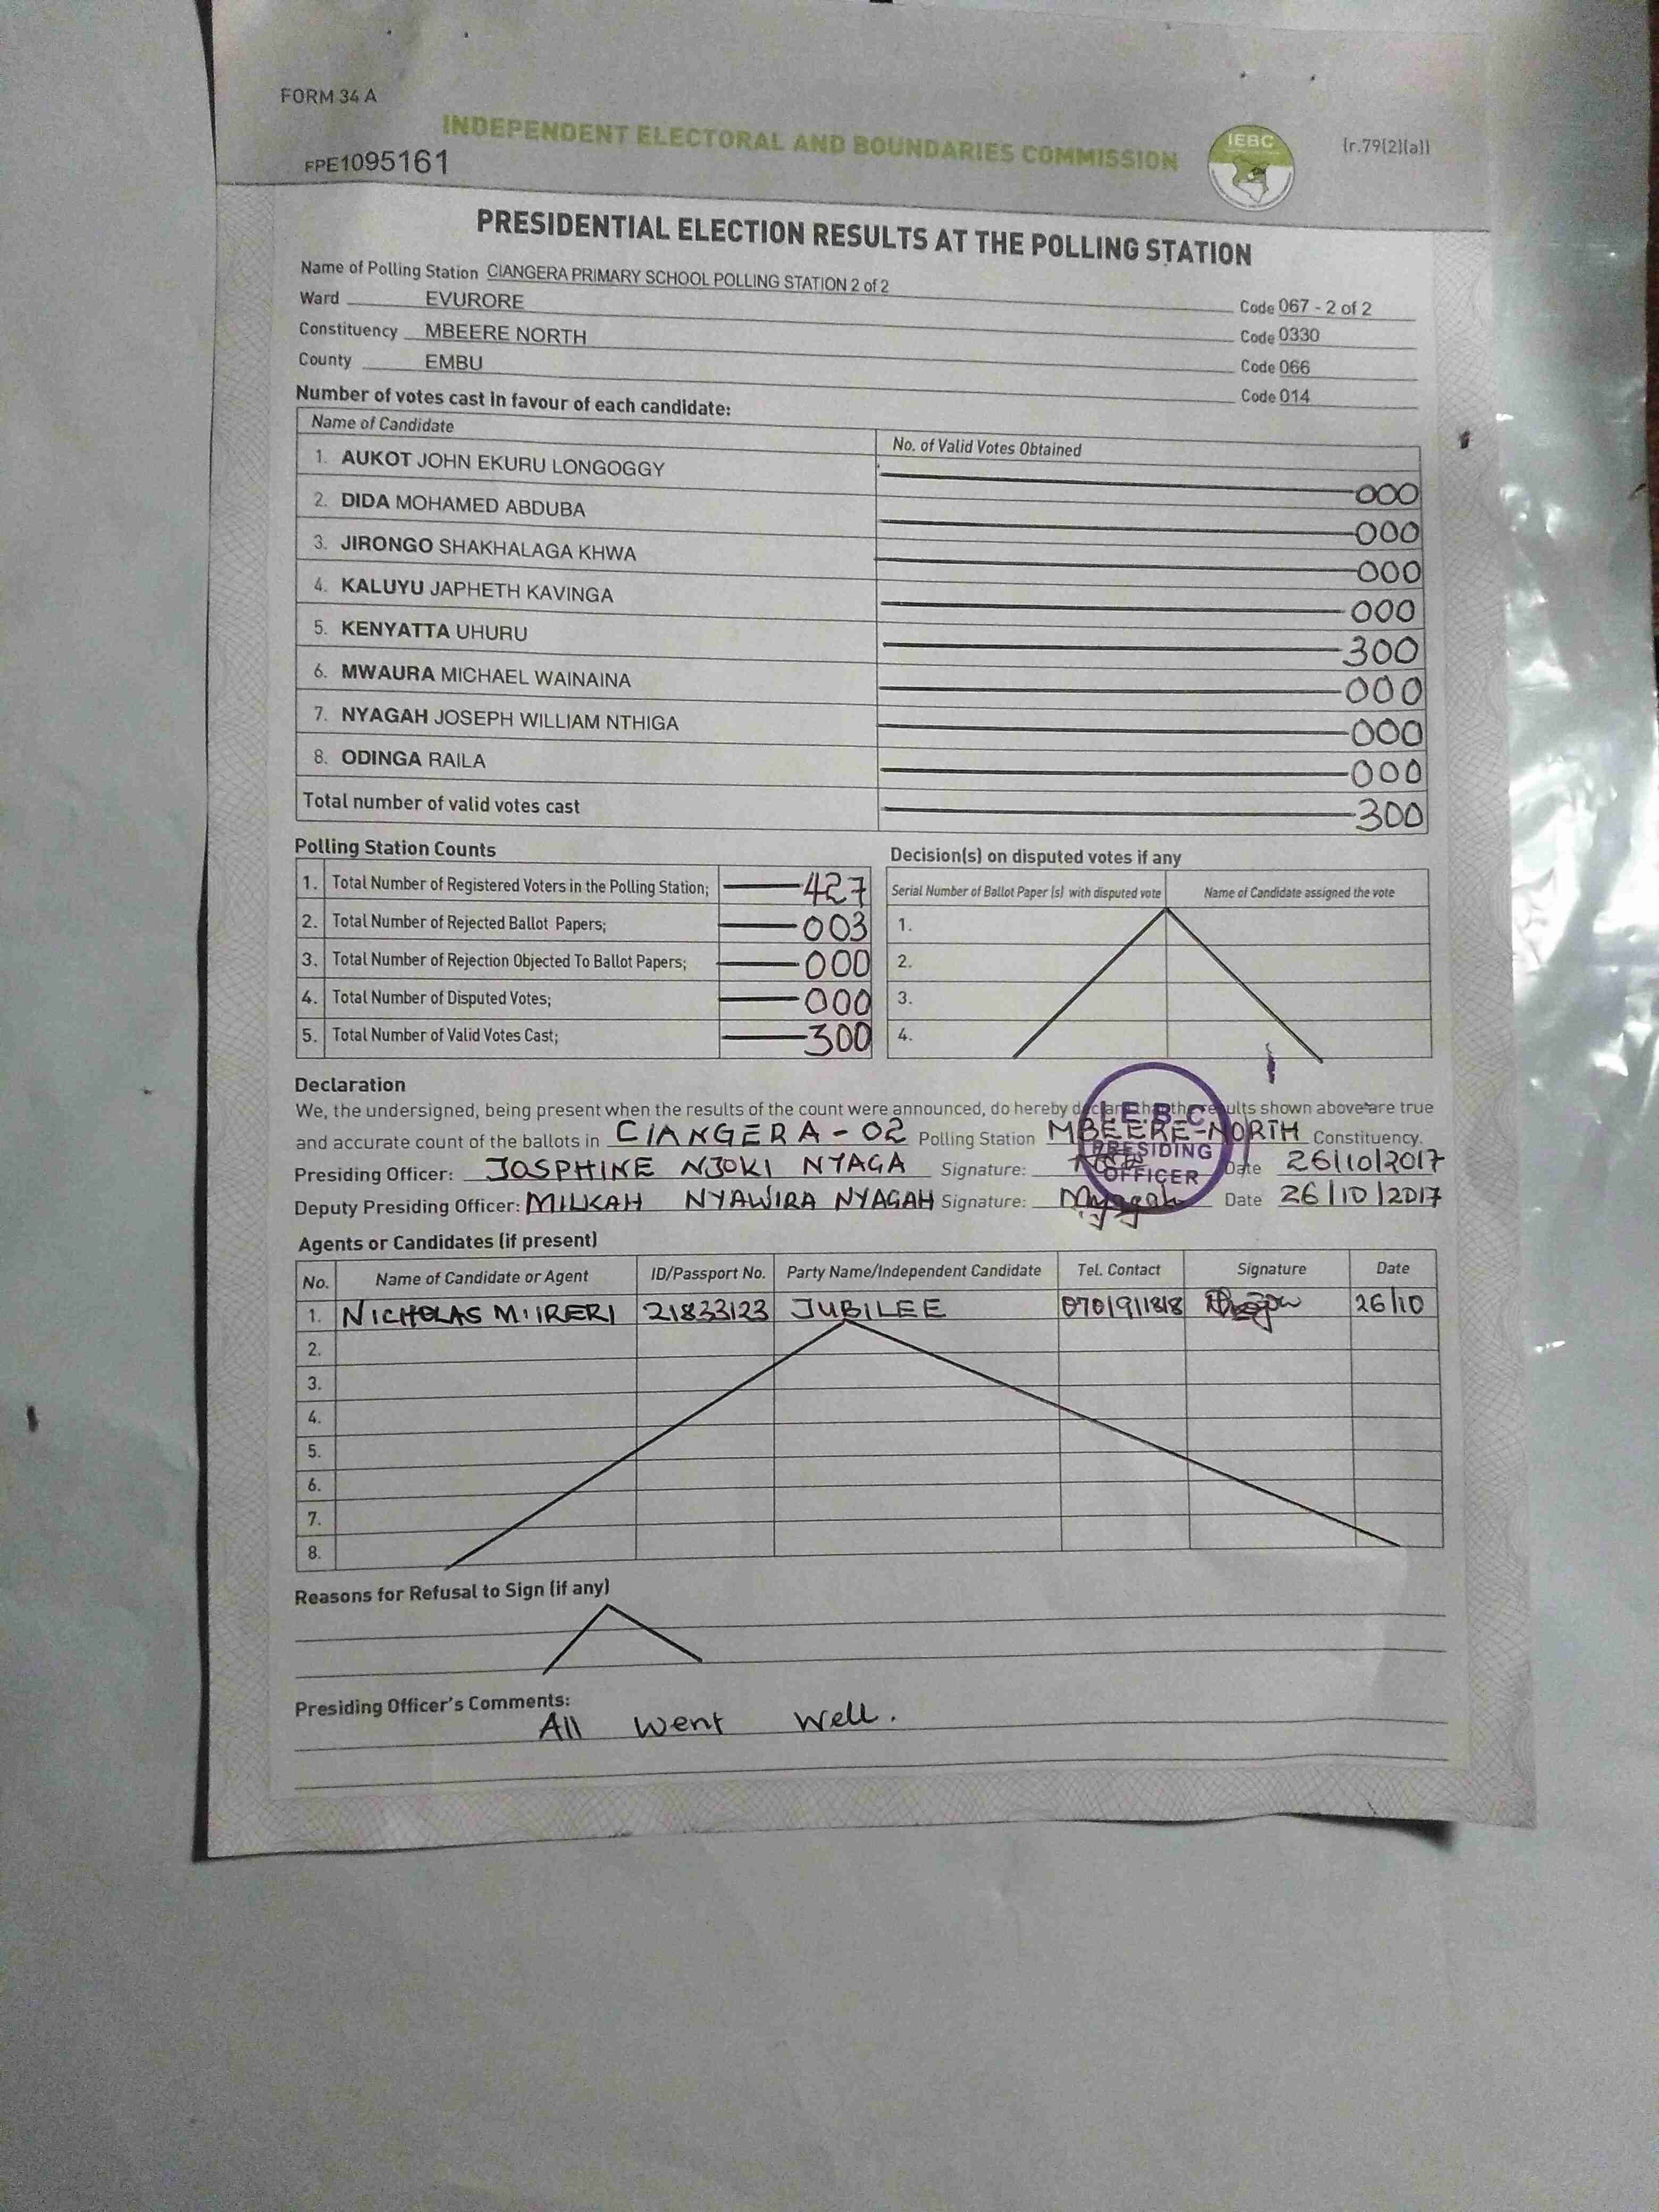 FORM 34 A
INDEPENDENT ELECTORAL AND BOUNDARIES COMMISSION
IEBC
(r.79(2)(a))
FPE1095161
PRESIDENTIAL ELECTION RESULTS AT THE POLLING STATION
Name of Polling Station CIANGERA PRIMARY SCHOOL POLLING STATION 2 of 2 Code 067 - 2 of 2
Ward EVURORE Code 0330
Constituency MBEERE NORTH Code 066
County EMBU Code 014
Number of votes cast in favour of each candidate:
Name of Candidate No. of Valid Votes Obtained
1. AUKOT JOHN EKURU LONGOGGY 000
2. DIDA MOHAMED ABDUBA 000
3. JIRONGO SHAKHALAGA KHWA 000
4. KALUYU JAPHETH KAVINGA 000
5. KENYATTA UHURU 300
6. MWAURA MICHAEL WAINAINA 000
7. NYAGAH JOSEPH WILLIAM NTHIGA 000
8. ODINGA RAILA 000
Total number of valid votes cast 300
Polling Station Counts
1. Total Number of Registered Voters in the Polling Station; 427
2. Total Number of Rejected Ballot Papers; 003
3. Total Number of Rejection Objected To Ballot Papers; 000
4. Total Number of Disputed Votes; 000
5. Total Number of Valid Votes Cast; 300
Decision(s) on disputed votes if any
Serial Number of Ballot Paper (s) with disputed vote Name of Candidate assigned the vote
1.
2.
3.
4.
Declaration
We, the undersigned, being present when the results of the count were announced, do hereby declare that the results shown above are true
and accurate count of the ballots in CIANGERA - 02 Polling Station MBEERE-NORTH Constituency.
Presiding Officer: JOSPHINE NJOKI NYAGA Signature: Date 26/10/2017
Deputy Presiding Officer: MILKAH NYAWIRA NYAGAH Signature: Date 26/10/2017
I.E.B.C
PRESIDING
OFFICER
Agents or Candidates (if present)
No. Name of Candidate or Agent ID/Passport No. Party Name/Independent Candidate Tel. Contact Signature Date
1. NICHOLAS 21833123 JUBILEE 0701911818 26/10
2.
3.
4.
5.
6.
7.
8.
Reasons for Refusal to Sign (if any)
Presiding Officer's Comments:
All went well.